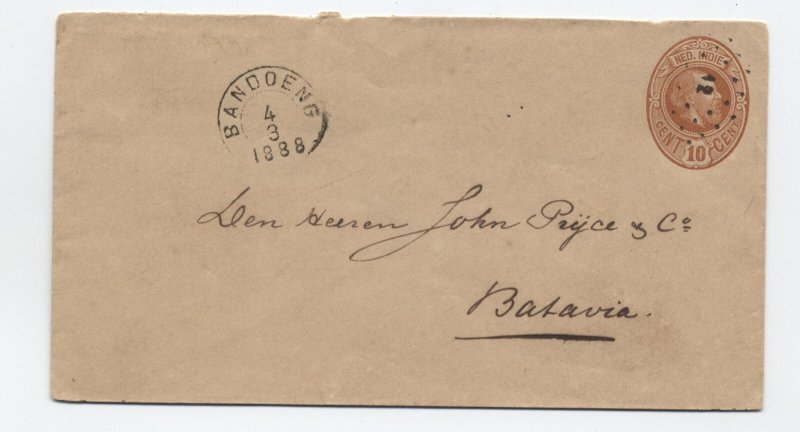 BANDOENG
4
3
1888
NED. INDIE
12
CENT 10 CENT
Den Heeren John Prÿce & Co
Batavia.